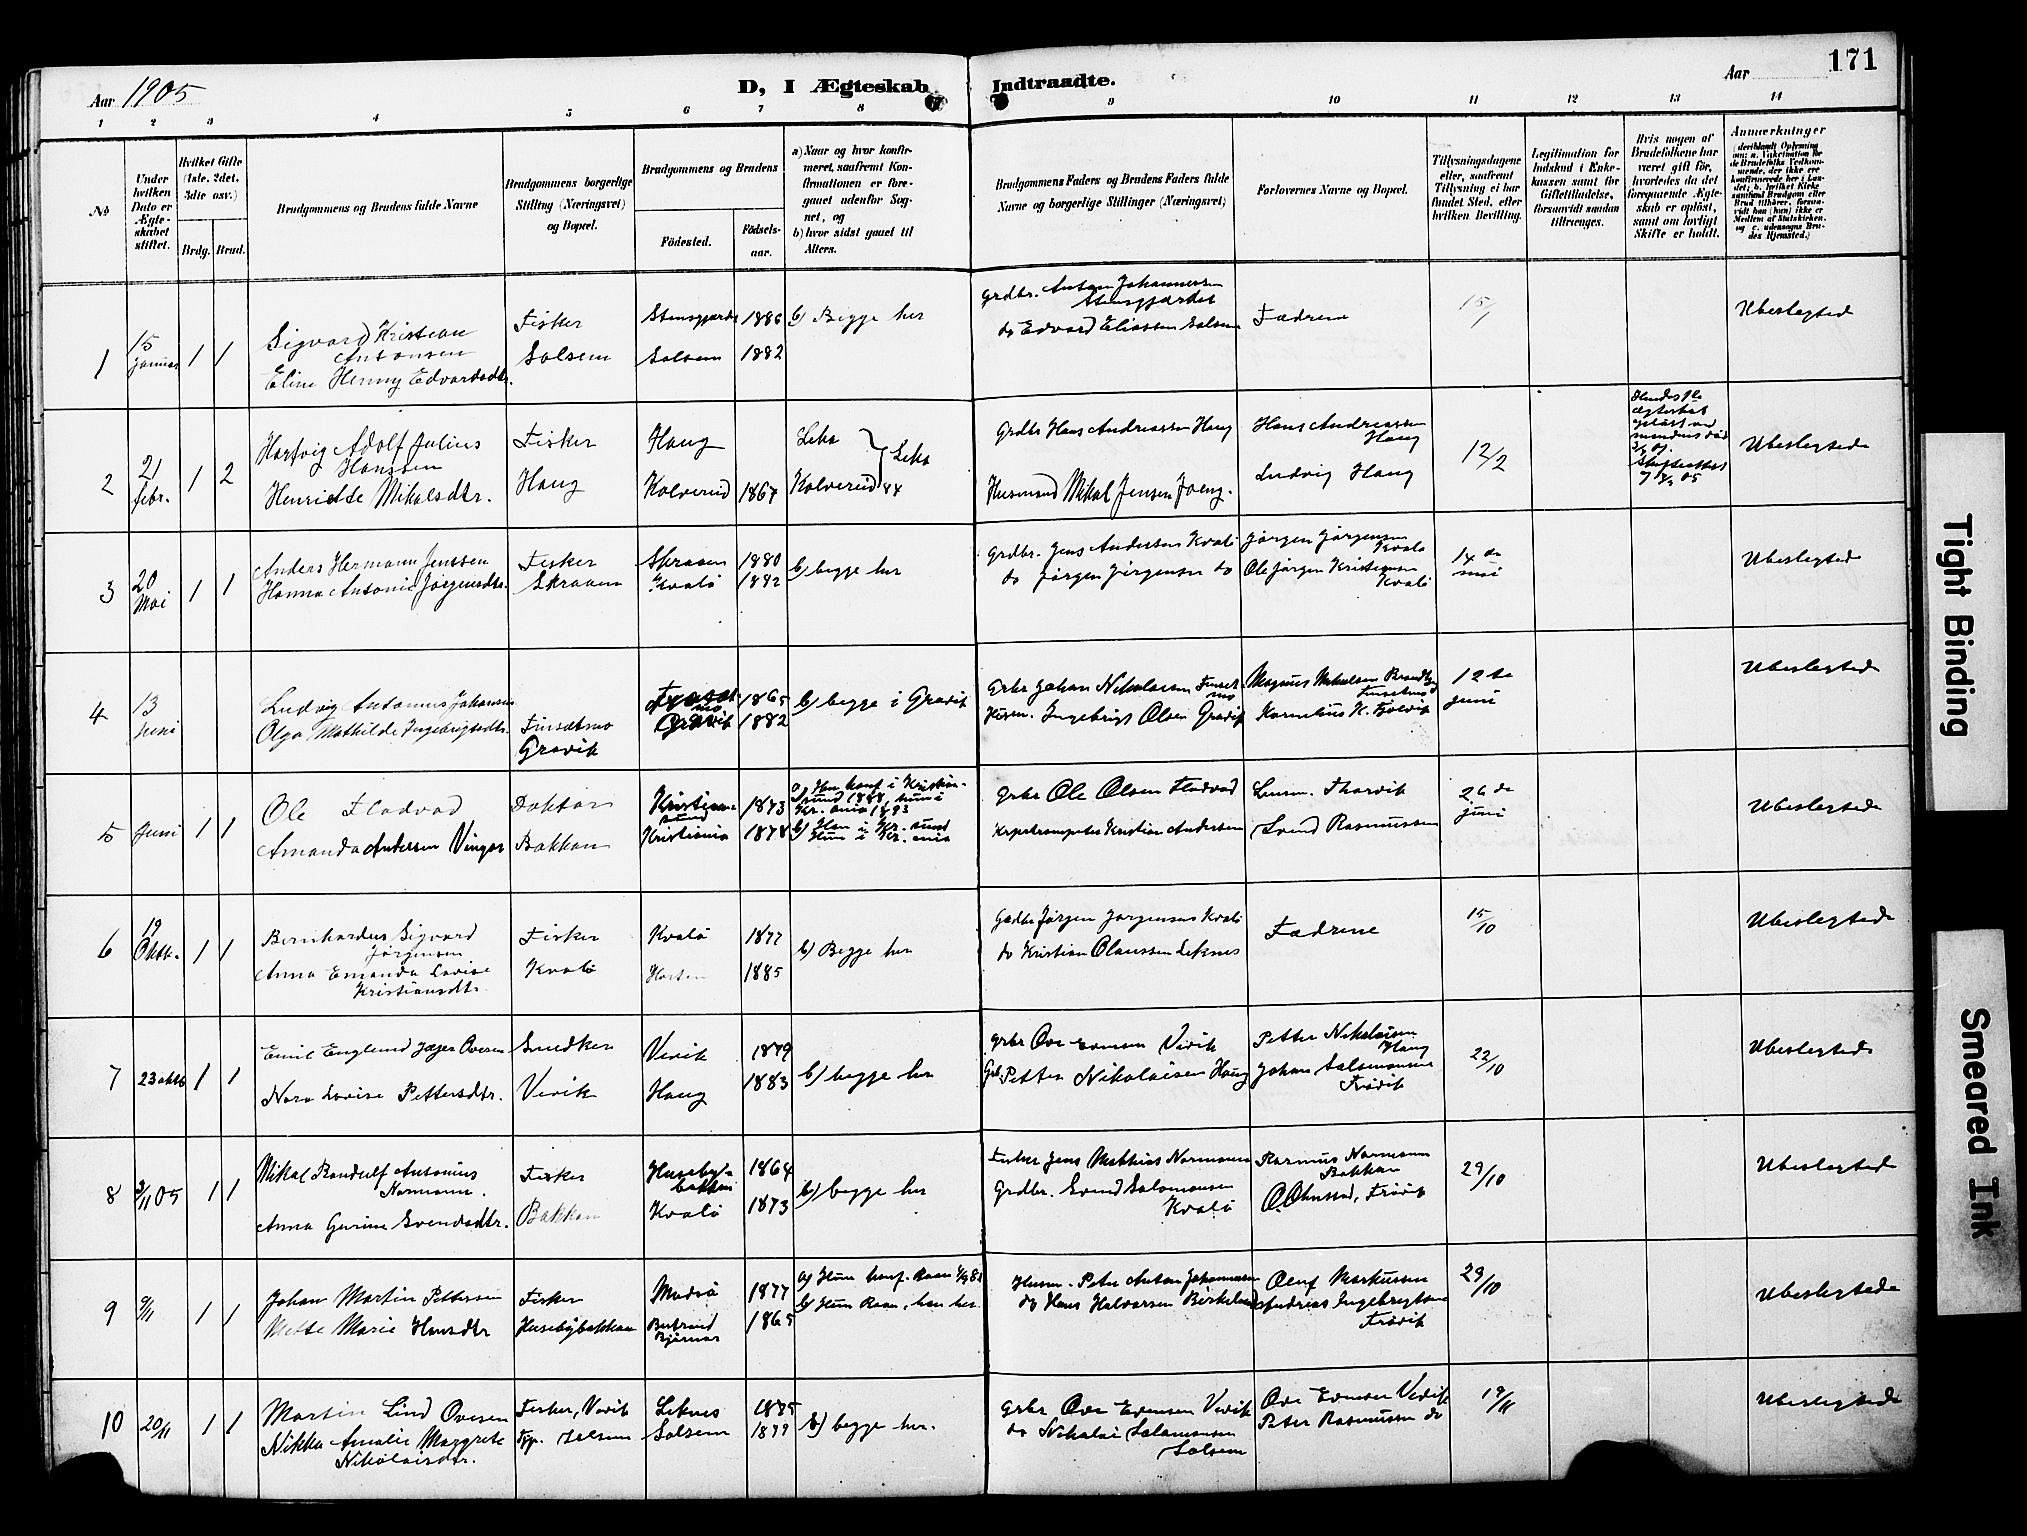 Aar 1905
D, I Ægteskab
Indtraadte.
Aar
171
1 2 3 4 5 6 7 8 9 10 11 12 13 14
No
Under hvilken Dato er Ægteskabet stiftet.
Hvilket Gifte (1ste, 2det, 3die osv.)
Brdg. Brud.
Brudgommens og Brudens fulde Navne
Brudgommens borgerlige Stilling (Næringsvei) og Bopæl.
Brudgommens og Brudens
Födested.
Födsels-aar.
a) Naar og hvor konfirmeret, saafremt Konfirmationen er foregaaet udenfor Sognet, og
b) hvor sidst gaaet til Alters.
Brudgommens Faders og Brudens Faders fulde Navne og borgerlige Stillinger (Næringsvei)
Forlovernes Navne og Bopæl.
Tillysningsdagene eller, saafremt Tillysning ei har fundet Sted, efter hvilken Bevilling.
Legitimation for Indskud i Enkekassen samt for Giftetilladelse, forsaavidt saadan tiltrænges.
Hvis nogen af Brudefolkene har været gift för, hvorledes da det foregaaende Ægteskab er oplöst, samt om lovligt Skifte er holdt.
Anmærkninger
1
15 januar
1 1
Sigvard Kristian Antonsen
Eline Henny Edvardsdtr.
Fisker
Solsem
Stensgjærde 1886
Solsem 1882
b) Begge her
Grdbr. Anton Johannessen Stensgjærdet
do Edvard Eliassen Solsem
Fædrene
15/1
Ubeslegted
2
21 febr.
1 2
Hartvig Adolf Julius Hanssen
Henriette Mikalsdtr.
Fisker
Haug
Haug
Kolvereid 1867
Leka
Kolvereid
Leka
Grdbr Hans Andreassen Haug
Husmand Mikal Jensen
Hans Andreassen Haug
Ludvig Haug
12/2
Ubeslegtede
3
20 Mai
1 1
Anders Hermann Jenssen
Hanna Antonie Jørgensdtr.
Fisker
Skraaen
Skraaen 1880
Kvalö 1882
b) begge her
Grdbr. Jens Andersen Kvalö
do Jørgen Jørgensen do
Jørgen Jørgensen Kvalö
Ole Jørgen Kristiansen Kvalö
14de mai
Ubeslegted
4
13 juni
Ludvig Antonius Johansen
Olga Mathilde Ingebrigtsdtr.
Finsætmo
Gravik
1865
Gravik 1882
b) begge i Gravik
Grbr Johan Nikolaisen
Husm. Ingebrigt Olsen Gravik
Magnus Mikalsen
Kornelius K.
12te juni
Ubeslegtede
5
Juni
1 1
Ole Flodvad
Amanda Andersen Vinger
Doktor
Bakkan
Kristiansund 1873
Kristiania 1878
a) Han konf i Kristiansund 1888, hun i Kr.ania 1893
b) Han i Kr. sund
Hun i Kr. ania
Grbr Ole Olsen Flodvad
Kristian Andersen
Lensm. Thorvik
Svend Rasmussen
26de juni
Ubeslegtede
6
19 Oktb.
1 1
Bernhardus Sigvard Jörgensen
Anna Emanda Lovise Kristiansdtr.
Fisker
Kvalö
Kvalö 1877
Horten 1885
b) Begge her
Gadbr Jørgen Jørgensen Kvalö
do Kristian Olaussen Leknes
Fædrene
15/10
Ubeslegtede
7
23 oktb
1 1
Emil Englund Jæger Ovesen
Nora Lovise Pettersdtr.
Snedker
Vevik
Vevik 1879
Haug 1883
b) begge her
Grbr Ove Evensen Vevik
Grb. Petter Nikolaisen Haug
Petter Nikolaisen Haug
Johan Salomonsen Frövik
22/10
Ubeslegtede
8
3/11 05
1 1
Mikal Randulf Antonius Normann.
Anna Gurine Svendsdtr.
Fisker
Bakkan
Husebybakkan 1864
Kvalö 1873
b) begge her
Fisker Jens Mathias Normann
Grdbr. Svend Salomonsen Kvalö
Rasmus Normann Bakkan
Frövik
29/10
Ubeslegtede
9
9/11
1 1
Johan Martin Pettersen
Mette Marie Hansdtr
Fisker
Husebybakkan
Madsö 1877
Bjørnør 1865
a) Hun konf. Roan
b) Hun Roan, han her.
Husm. Peter Anton Johannessen
do Hans Halvorsen Birkeland
Oluf Markussen
Andreas Ingebrigtsen Frövik
29/10
Ubeslegtede
10
20/11
1 1
Martin Lind Ovesen
Nikka Amalie Margrete Nikolaisdtr.
Fisker, Vevik
Solsem
Leknes 1875
Solsem 1879
b) begge her.
Grbr Ove Evensen Vevik
do Nikolai Salamonsen Solsem
Ove Evensen Vevik
Peter Rasmussen do
19/11
Ubeslegtede
Tight Binding
Smeared Ink